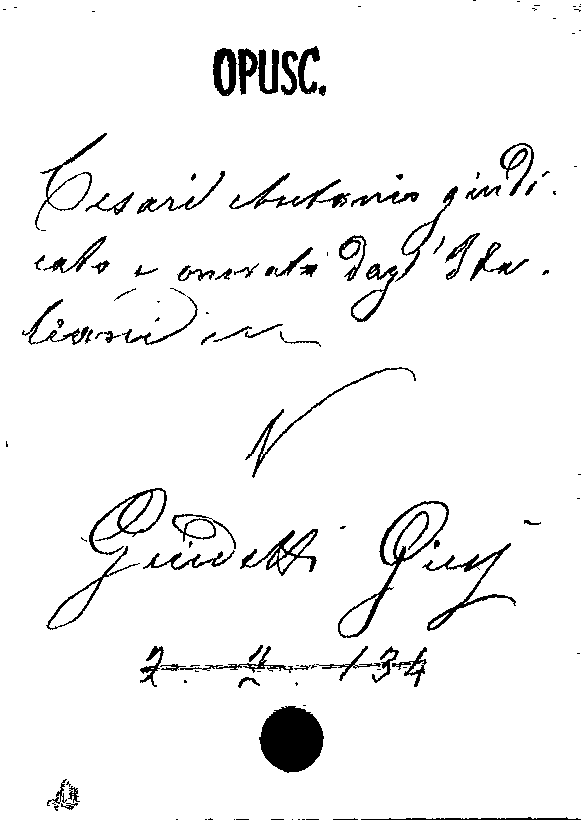 OPUSC.
Cesari Antonio giudi-
cato e onorato dagl'Ita-
liani
V
Guidetti Gius
2. 2. 134